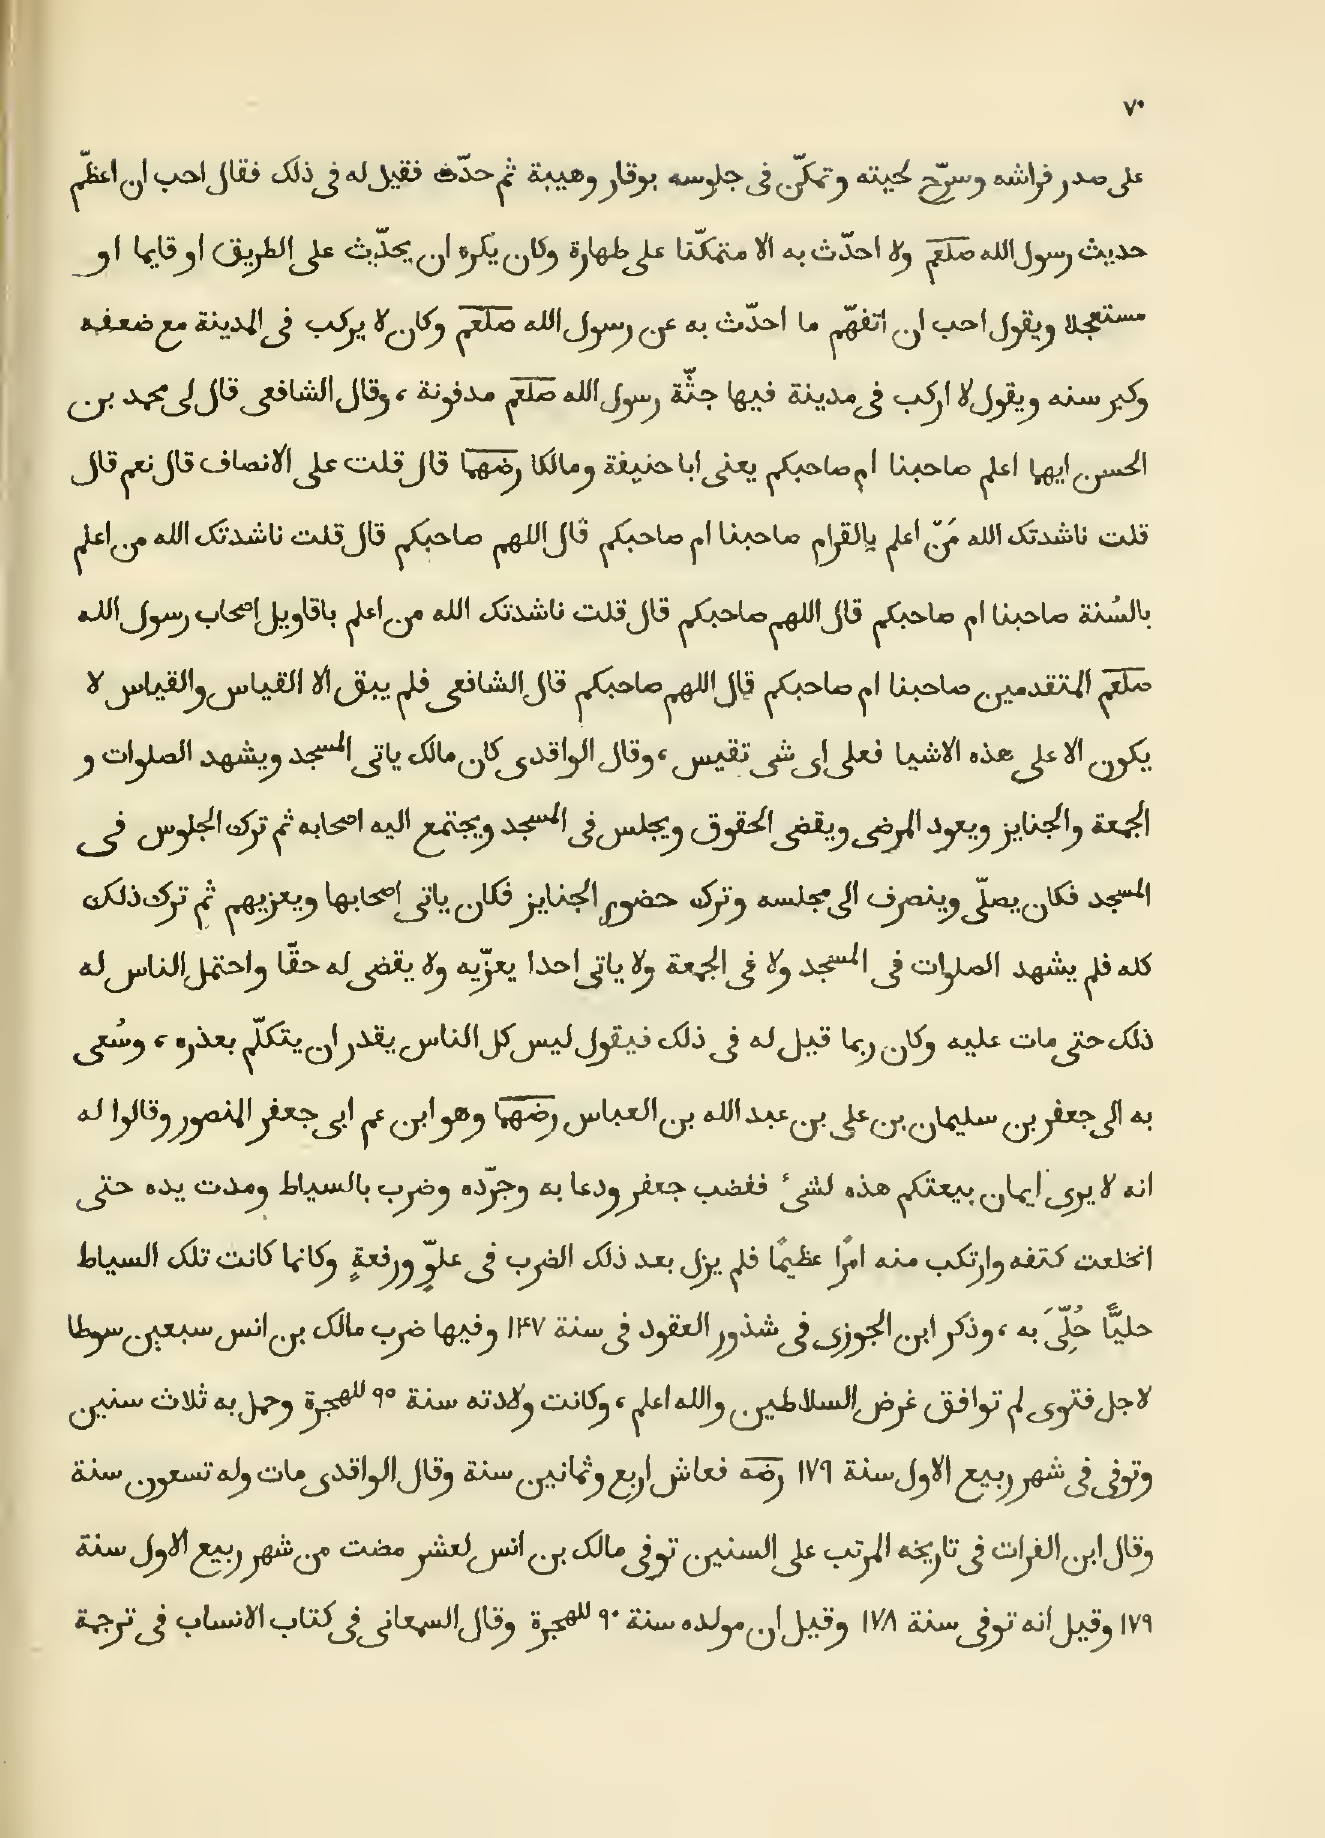 ٧٠
على صدر فراشه وسرّح لحيته وتمكّن فى جلوسه بوقار وهيبة ثم حدّث فقيل له فى ذلك فقال احب ان اعظّم
حديث رسول الله صلعم ولا احدّث به الا متمكّنا على طهارة وكان يكره ان يحدّث على الطريق او قايما او
مستعجلا ويقول احب ان اتفهّم ما احدّث به عن رسول الله صلعم وكان لا يركب فى المدينة مع ضعفه
وكبر سنه ويقول لا اركب فى مدينة فيها جثّة رسول الله صلعم مدفونة ، وقال الشافعى قال لى محمد بن
الحسن ايهما اعلم صاحبنا ام صاحبكم يعنى ابا حنيفة ومالكا رضهما قال قلت على الانصاف قال نعم قال
قلت ناشدتك الله مَنْ اعلم بالقرام صاحبنا ام صاحبكم قال اللهم صاحبكم قال قلت ناشدتك الله من اعلم
بالسُنة صاحبنا ام صاحبكم قال اللهم صاحبكم قال قلت ناشدتك الله من اعلم باقاويل اصحاب رسول الله
صلعم المتقدمين صاحبنا ام صاحبكم قال اللهم صاحبكم قال الشافعى فلم يبق الا القياس والقياس لا
يكون الا على هذه الاشيا فعلى اى شى تقيس ، وقال الواقدى كان مالك ياتى المسجد ويشهد الصلوات و
الجمعة والجنايز ويعود المرضى ويقضى الحقوق ويجلس فى المسجد ويجتمع اليه اصحابه ثم ترك الجلوس فى
المسجد فكان يصلّى وينصرف الى مجلسه وترك حضور الجنايز فكان ياتى اصحابها ويعزيهم ثم ترك ذلك
كله فلم يشهد الصلوات فى المسجد ولا فى الجمعة ولا ياتى احدا يعزّيه ولا يقضى له حقّا واحتمل الناس له
ذلك حتى مات عليه وكان ربما قيل له فى ذلك فيقول ليس كل الناس يقدر ان يتكلّم بعذره ، وسُعى
به الى جعفر بن سليمان بن على بن عبد الله بن العباس رضهما وهو ابن عم ابى جعفر المنصور وقالوا له
انه لا يرى ايمان بيعتكم هذه لشىء فغضب جعفر ودعا به وجرّده وضرب بالسياط ومدت يده حتى
انخلعت كتفه وارتكب منه امرًا عظيمًا فلم يزل بعد ذلك الضرب فى علوٍّ ورفعةٍ وكانما كانت تلك السياط
حليًّا حُلِّىَ به ، وذكر ابن الجوزى فى شذور العقود فى سنة ١٤٧ وفيها ضرب مالك بن انس سبعين سوطا
لاجل فتوى لم توافق غرض السلاطين والله اعلم ، وكانت ولادته سنة ٩٥ للهجرة وحمل به ثلاث سنين
وتوفى فى شهر ربيع الاول سنة ١٧٩ رضه فعاش اربع وثمانين سنة وقال الواقدى مات وله تسعون سنة
وقال ابن الفرات فى تاريخه المرتب على السنين توفى مالك بن انس لعشر مضت من شهر ربيع الاول سنة
١٧٩ وقيل انه توفى سنة ١٧٨ وقيل ان مولده سنة ٩٠ للهجرة وقال السمعانى فى كتاب الانساب فى ترجمة